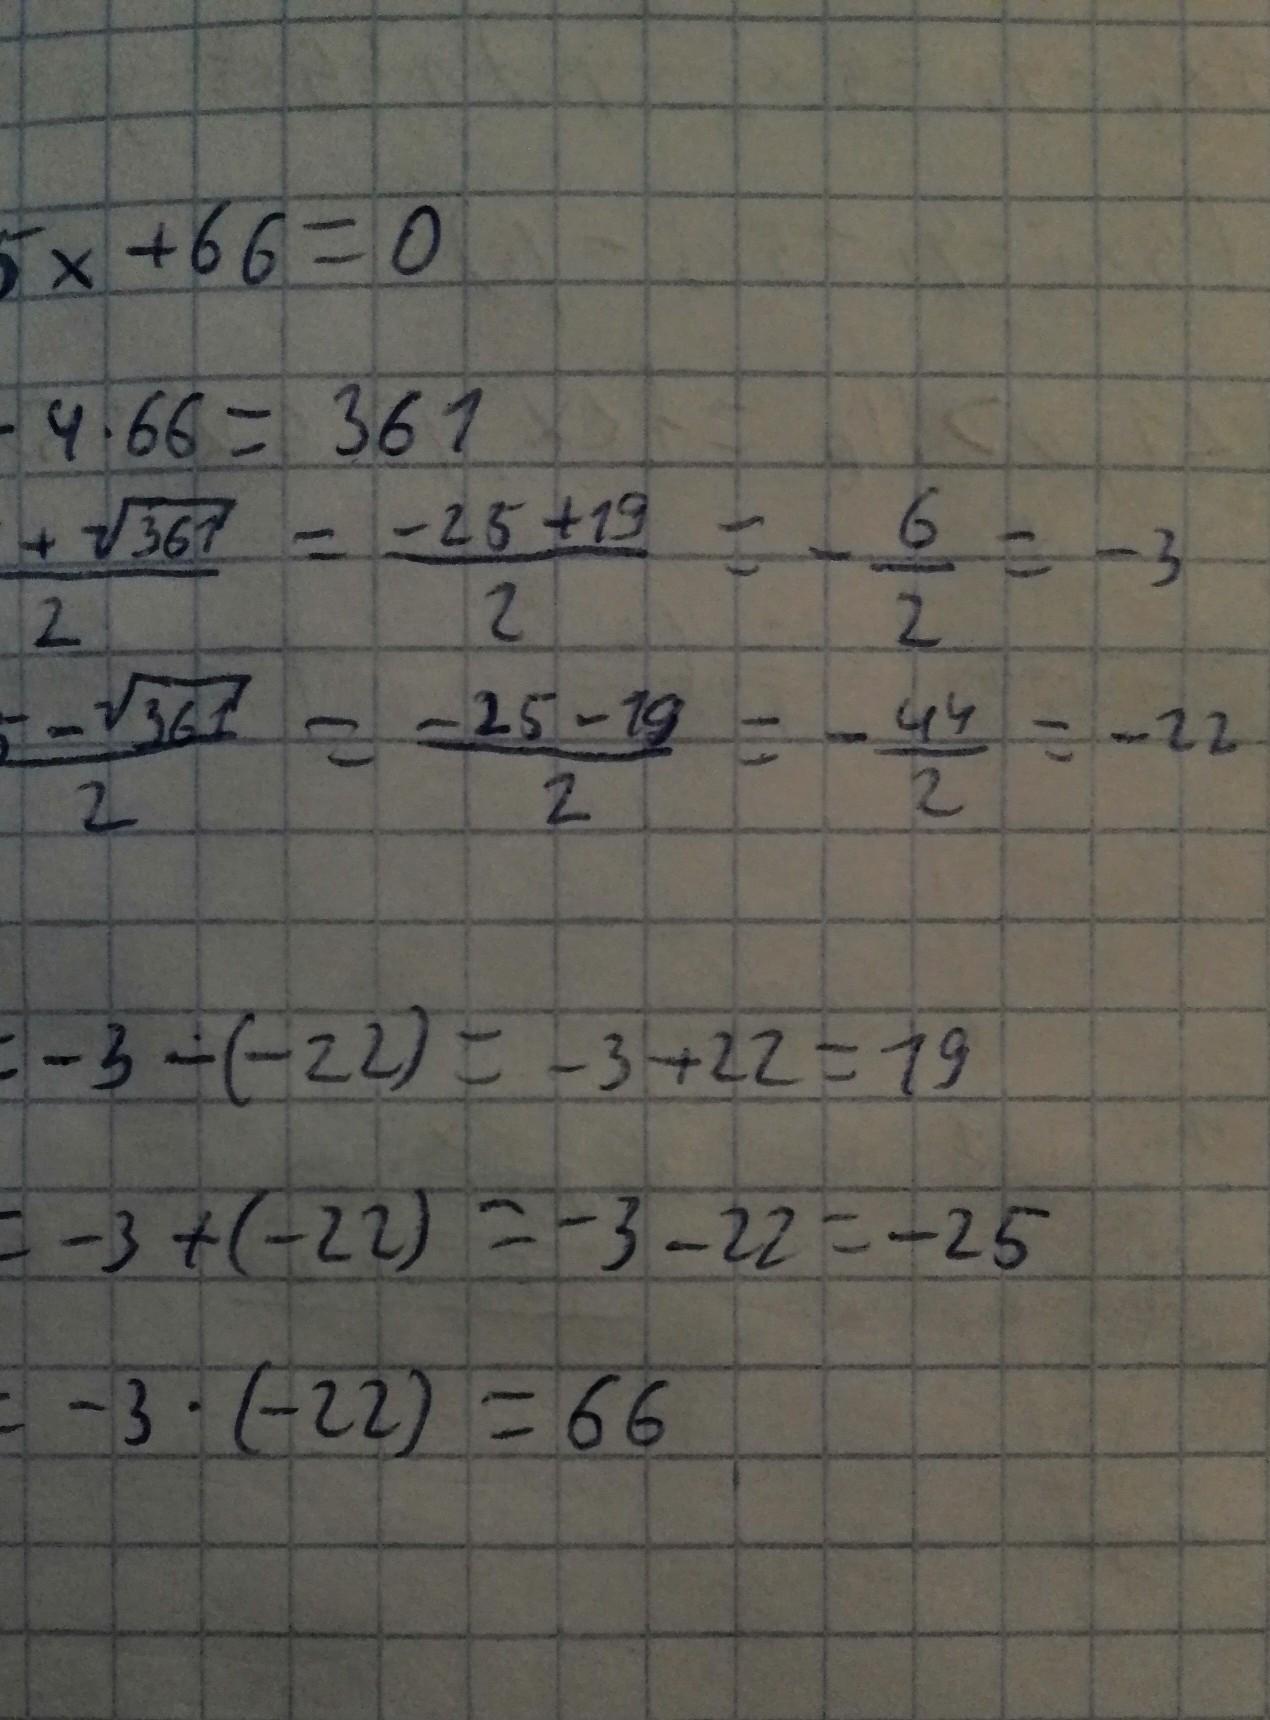 5x + 66 = 0
- 4 · 66 = 361
+ √361 / 2 = -25 + 19 / 2 = - 6 / 2 = -3
5 - √361 / 2 = -25 - 19 / 2 = - 44 / 2 = -22
= -3 - (-22) = -3 + 22 = 19
= -3 + (-22) = -3 - 22 = -25
= -3 · (-22) = 66